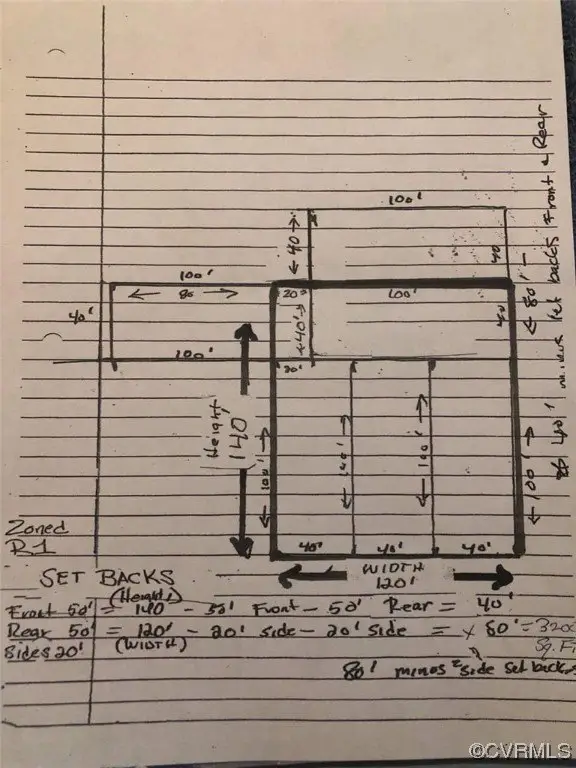 100'
← 40 →
40
100'
← 80 →
20'
100'
40'
← 40' →
40
← 80' -
minus set backs Front & Rear
100'
20'
Height
140'
← 100' →
← 140' →
← 100' →
← 100' →
40'
40'
40'
WIDTH
120'
Zoned
R1
SET BACKS
(Height)
Front 50' = 140 - 50' Front - 50' Rear = 40'
Rear 50' = 120' - 20' side - 20' side = x 80' = 3200
Sides 20'
(WIDTH)
Sq. Ft
80' minus 2 side set backs
©CVRMLS